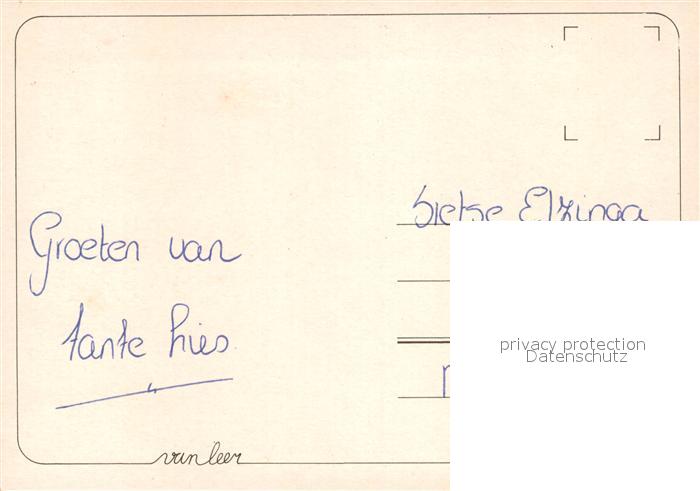 Groeten van
tante hies
Sietse Elzinga
privacy protection
Datenschutz
van leer